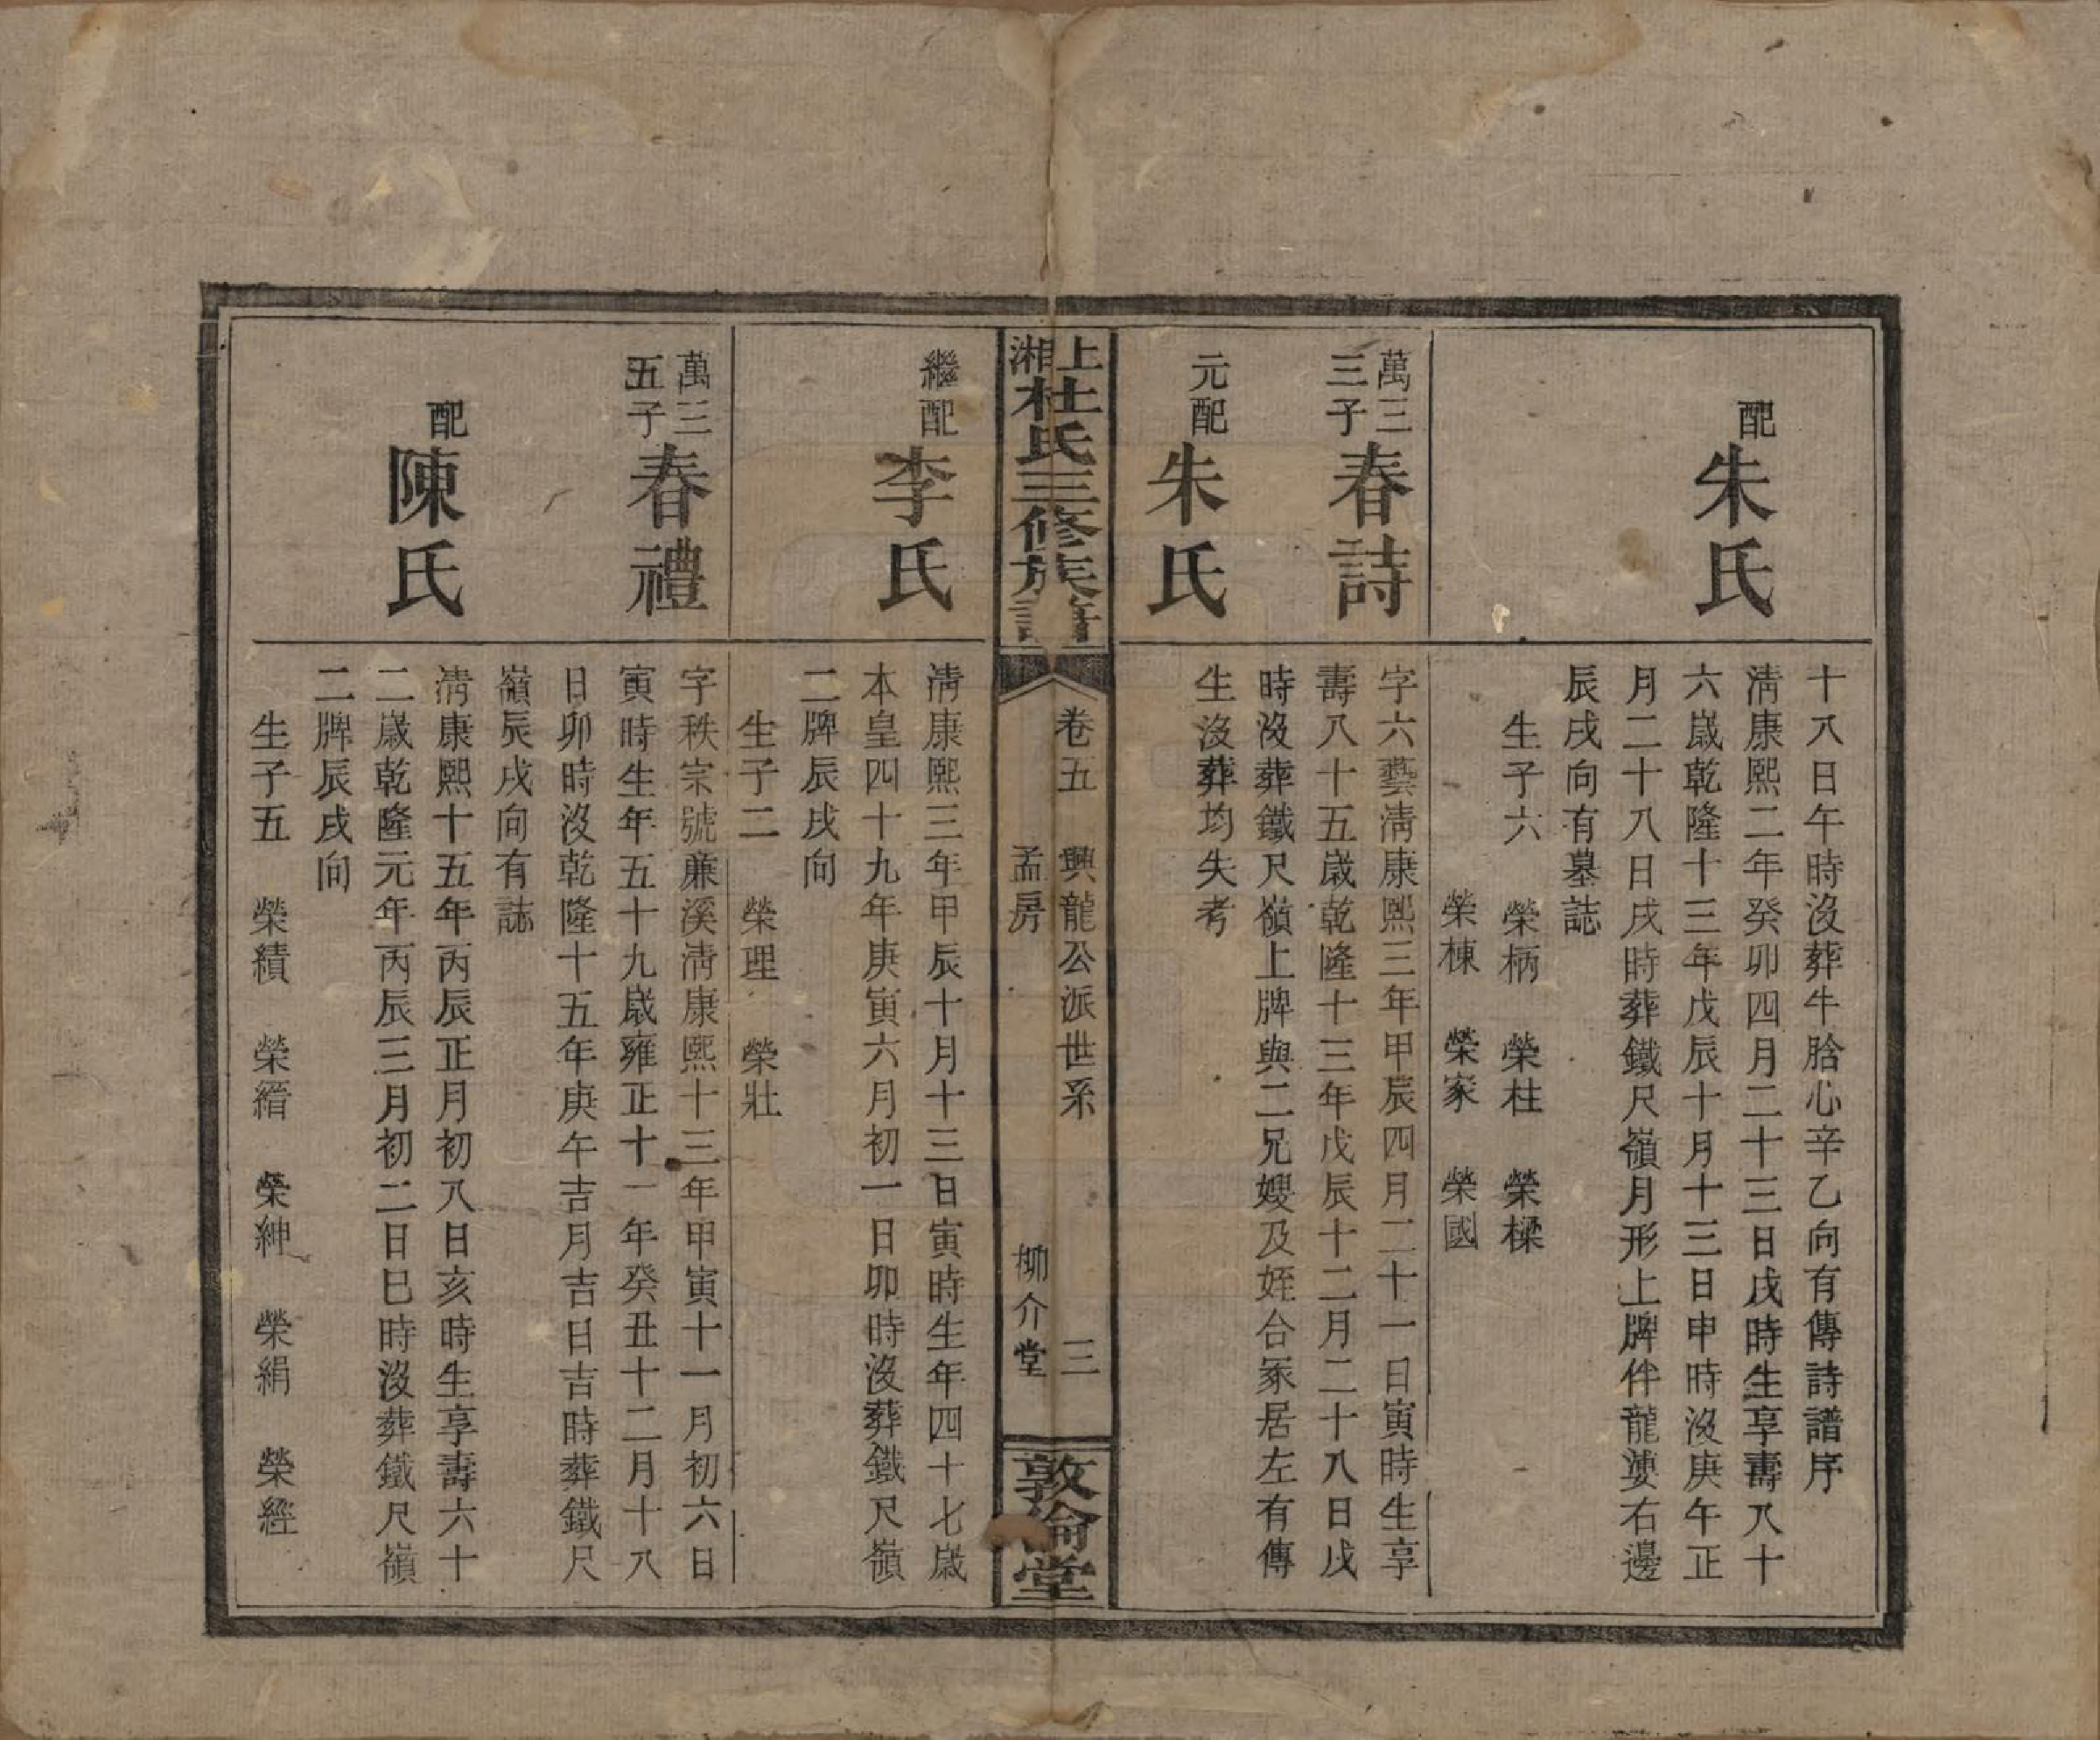 十八日午時沒葬牛脴心辛乙向有傳詩譜序
配朱氏
淸康熙二年癸卯四月二十三日戌時生享壽八十
六歲乾隆十三年戊辰十月十三日申時沒庚午正
月二十八日戌時葬鐵尺嶺月形上牌伴龍婆右邊
辰戌向有墓誌
生子六 榮柄 榮柱 榮樑
榮棟 榮家 榮國
萬三三子春詩
字六藝淸康熙三年甲辰四月二十一日寅時生享
壽八十五歲乾隆十三年戊辰十二月二十八日戌
時沒葬鐵尺嶺上牌與二兄嫂及姪合冢居左有傳
元配朱氏
生沒葬均失考
上湘杜氏三修族譜
卷五 興龍公派世系 三
孟房 柳介堂
敦倫堂
繼配李氏
淸康熙三年甲辰十月十三日寅時生年四十七歲
本皇四十九年庚寅六月初一日卯時沒葬鐵尺嶺
二牌辰戌向
生子二 榮理 榮壯
萬三五子春禮
字秩宗號廉溪淸康熙十三年甲寅十一月初六日
寅時生年五十九歲雍正十一年癸丑十二月十八
日卯時沒乾隆十五年庚午吉月吉日吉時葬鐵尺
嶺辰戌向有誌
配陳氏
淸康熙十五年丙辰正月初八日亥時生享壽六十
二歲乾隆元年丙辰三月初二日巳時沒葬鐵尺嶺
二牌辰戌向
生子五 榮績 榮縉 榮紳 榮絹 榮經